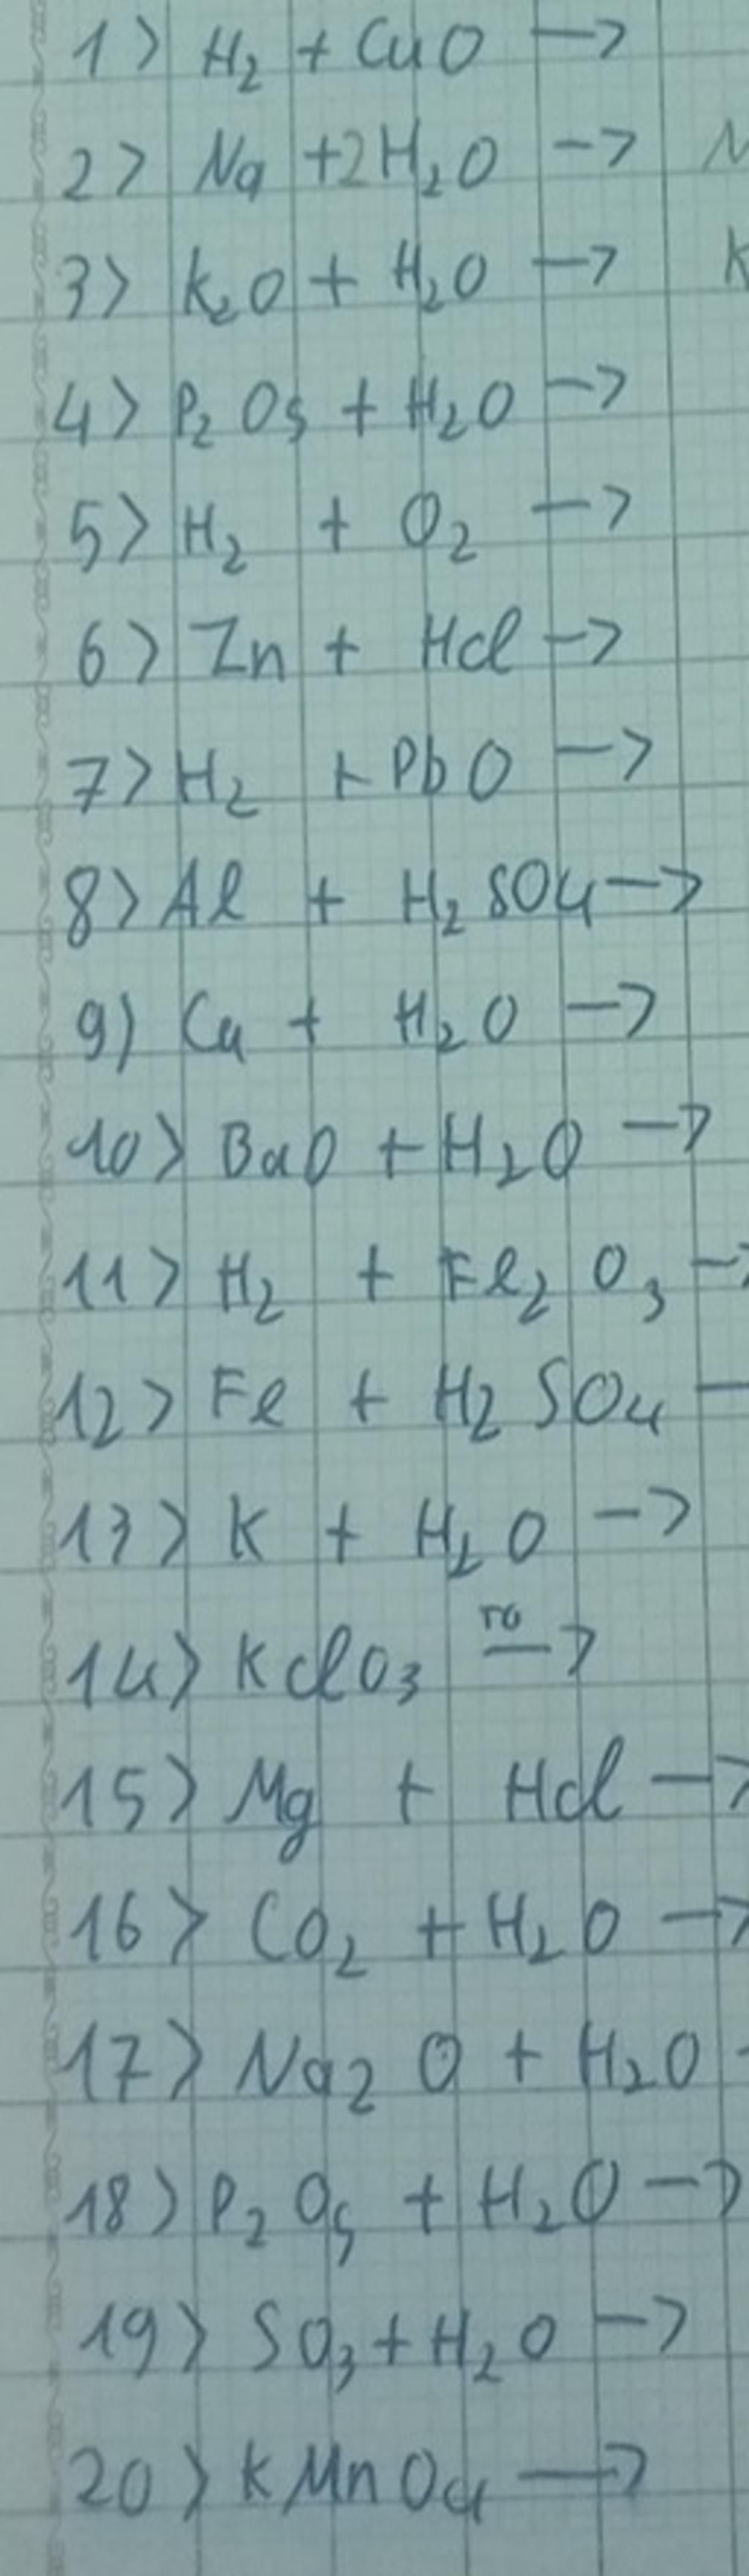 1> H₂ + CuO →
2> Na +2H₂O → N
3> K₂O + H₂O → K
4> P₂O₅ + H₂O →
5> H₂ + O₂ →
6> Zn + Hcl →
7> H₂ + PbO →
8> Al + H₂SO₄ →
9) Ca + H₂O →
10> BaO + H₂O →
11> H₂ + Fe₂O₃ →
12> Fe + H₂SO₄ —
13> K + H₂O →
14> KclO₃ t⁰→
15> Mg + Hcl →
16> CO₂ + H₂O →
17> Na₂O + H₂O -
18> P₂O₅ + H₂O →
19> SO₃ + H₂O →
20> KMnO₄ →